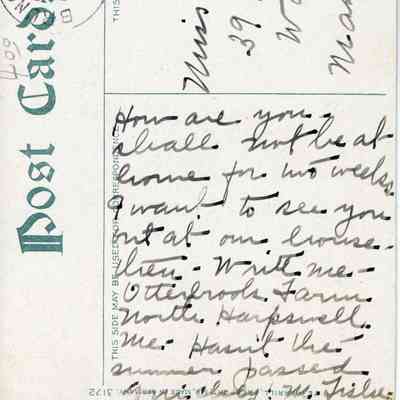 Post Card
400
Miss
39
Wo
THIS SIDE MAY BE USED FOR CORRESPONDENCE
How are you -
shall not be at
home for two weeks
I want to see you
out at our house -
then - Write me -
Otterbrook Farm
North Harpswell
Me - Hasn't the
summer passed
3172